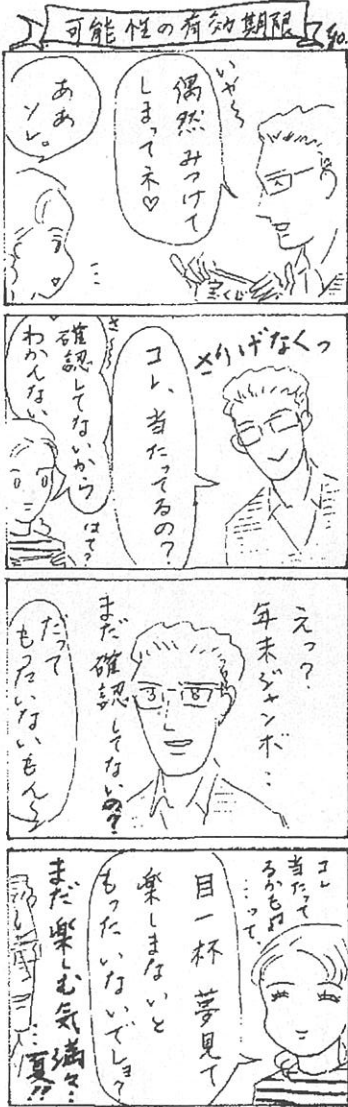 可能性の有効期限
いや〜
偶然みつけて
しまってネ♡
ああ
ソレ。
宝くじ
さりげなくっ
コレ、当たってるの？
さぁ〜
確認してないから
わかんない
はて？
えっ？
年末ジャンボ…
まだ確認してないの？
だって
もったいないもん〜
コレ
当たって
るかもね
…って、
目一杯夢見て
楽しまないと
もったいないでしョ？
まだ楽しむ気満々…
…夏!!